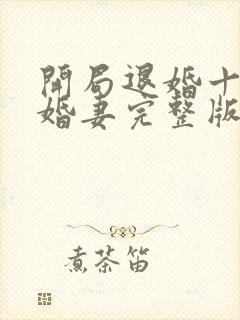 開局退婚十
婚妻完整版
煮茶笛